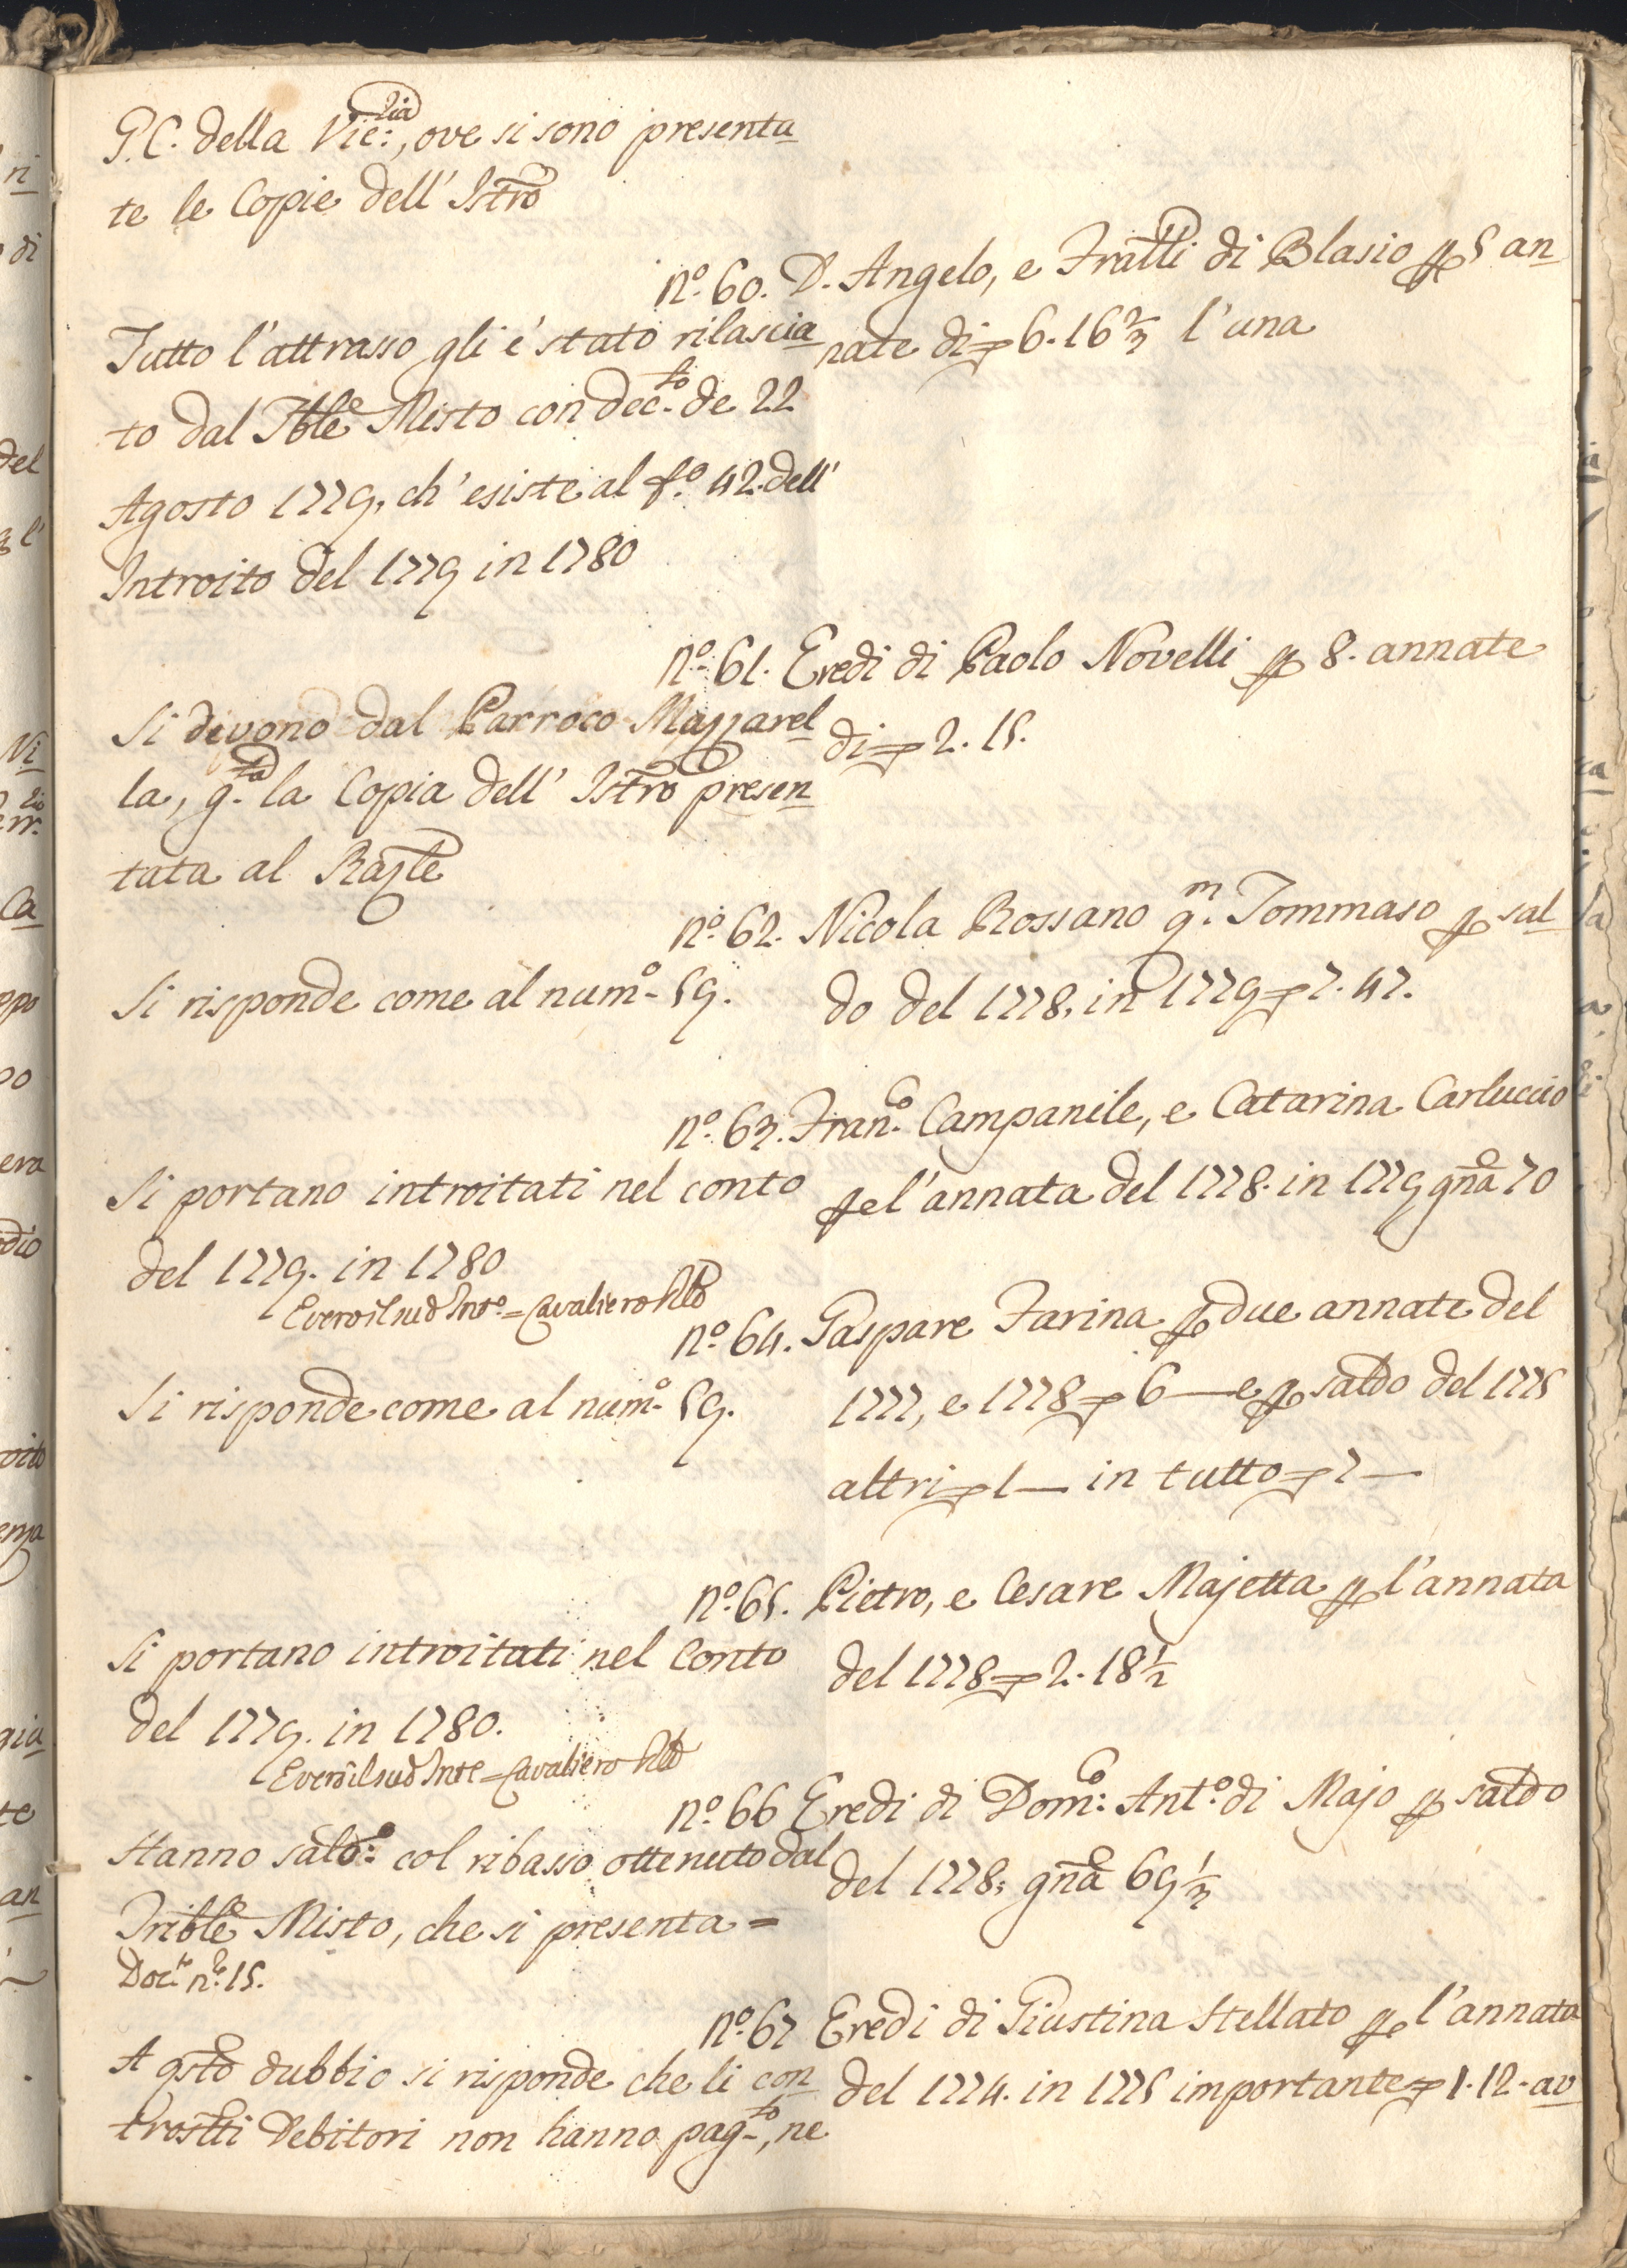 G.C. della Vic:ria, ove si sono presenta
te le Copie dell' Istro
n.º 60. D. Angelo, e Fratlli di Blasio p 5 an
nate di 6.16 2/3 l'una
Tutto l'attrasso gli è stato rilascia
to dal Tble Misto con dec.to de 22
Agosto 1779, ch'esiste al f.º 42. dell'
Introito del 1779 in 1780
n.º 61. Eredi di Paolo Novelli p 8. annate
di 2.15.
Si devono dal Parroco Mazzarel
la, g.ta la Copia dell' Istro presen
tata al Razle
n.º 62. Nicola Rossano q.m Tommaso p sal
do del 1778. in 1779 7.47.
Si risponde come al num.º 59.
n.º 63. Fran.co Campanile, e Catarina Carluccio
pel'annata del 1778. in 1779 gna 70
Si portano introitati nel conto
del 1779. in 1780
E vero il sud Int.º = Cavaliero
n.º 64. Gaspare Farina p due annate del
1777, e 1778 6 — e p saldo del 1775
altri 1 — in tutto 7 —
Si risponde come al num.º 59.
n.º 65. Pietro, e Cesare Majetta p l'annata
del 1778 2.18 1/2
Si portano introitati nel Conto
del 1779. in 1780.
E vero il sud Inte = Cavaliero
n.º 66 Eredi di Dom:co Ant.º di Majo p saldo
del 1778; gna 69 1/3
Hanno sald:o col ribasso ottenuto dal
Trible Misto, che si presenta =
Doc.to n.º 15.
n.º 67 Eredi di Giustina Stellato pe l'annata
del 1774. in 1775 importante 1.12. av
A qsto dubbio si risponde che li con
trostti Debitori non hanno pag.to, ne